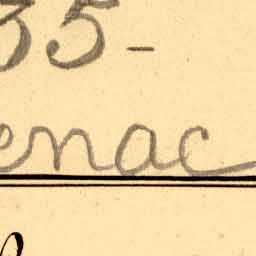 35-
enac